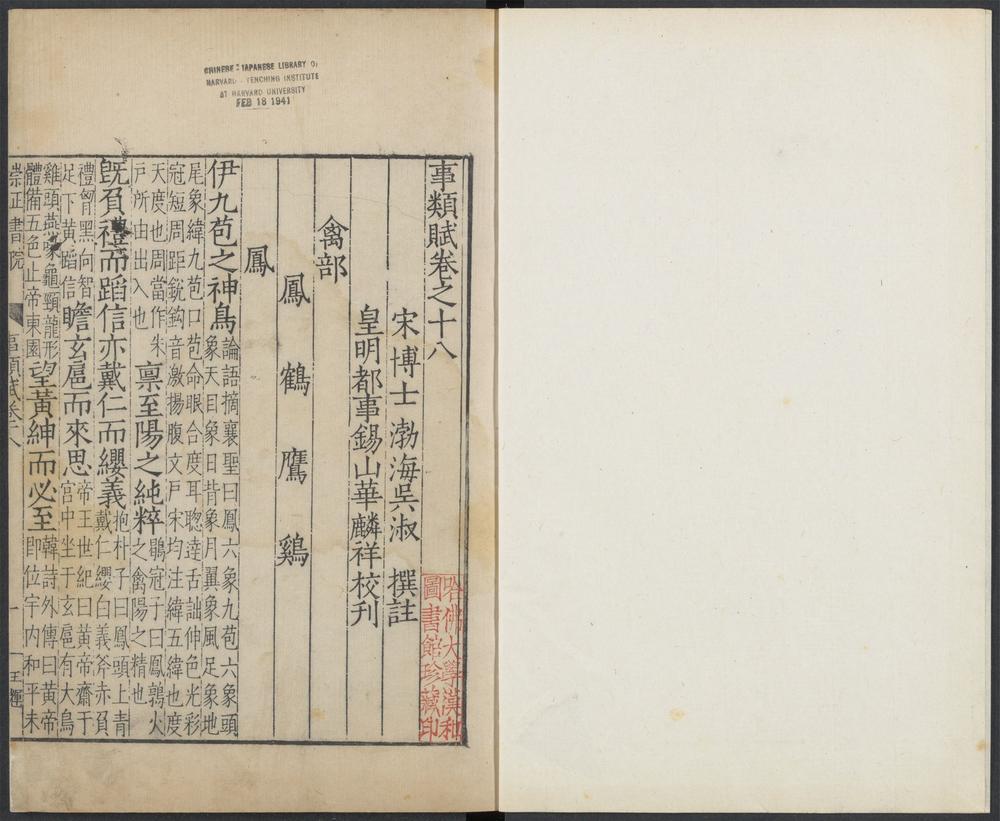 CHINESE - JAPANESE LIBRARY OF
HARVARD - YENCHING INSTITUTE
AT HARVARD UNIVERSITY
FEB 18 1941
事類賦卷之十八
哈佛大學漢和
圖書館珍藏印
宋博士渤海吳淑 撰註
皇明都事錫山華麟祥校刊
禽部
鳳 鶴 鷹 鷄
鳳
伊九苞之神鳥論語摘襄聖曰鳳六象九苞六象頭
象天目象日背象月翼象風足象地
尾象緯九苞口苞命眼合度耳聦達舌詘伸色光彩
冠短周距銳鈎音激揚腹文戸宋均注緯五緯也度
天度也周當作朱
戸所由出入也稟至陽之純粹鶡冠子曰鳳鶉火
之禽陽之精也
既負禮而蹈信亦戴仁而纓義抱朴子曰鳳頭上青
戴仁纓白義斧赤負
禮胷黑向智
足下黃蹈信瞻玄扈而來思帝王世紀曰黃帝齋于
宮中坐于玄扈有大鳥
雞頭燕喙龜頸龍形
體備五色止帝東園望黃紳而必至韓詩外傳曰黃帝
即位宇内和平未
崇正書院
事類賦卷十八
一
王運